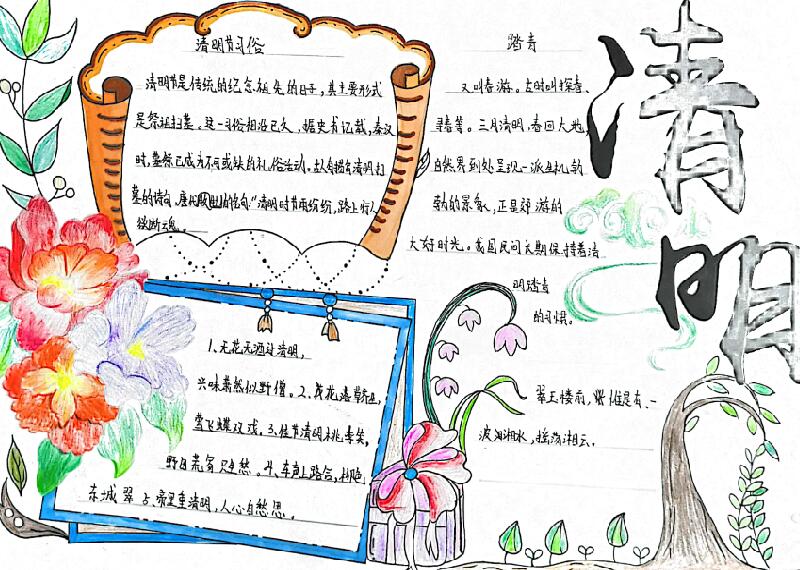 清明节习俗
清明节是传统的纪念祖先的日子,其主要形式
是祭祖扫墓,这一习俗相沿已久,据史书记载,秦汉
时,墓祭已成为不可或缺的礼俗活动。
墓的诗句,唐 的佳句"清明时节雨纷纷,路上行人
欲断魂。
踏青
又叫春游。古时叫探春、
寻春等。三月清明,春回大地,
自然界到处呈现一派生机勃
勃的景象,正是郊游的
大好时光。我国民间长期保持着清
明踏青
的习惯。
清明
1、无花无酒过清明,
兴味萧然似野僧。2、
莺飞蝶双戏。3、佳节清明桃李笑,
野田荒冢只生愁。4、车声上路合,柳色
东城翠 5、帝里重清明,人心自愁思。
翠玉楼前,惟是有、一
波湘水,摇荡湘云。